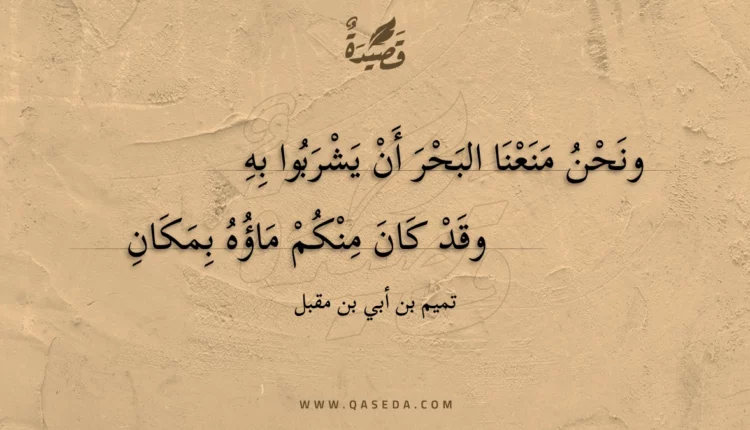 قَصِيْدَةٌ
ونَحْنُ مَنَعْنَا البَحْرَ أَنْ يَشْرَبُوا بِهِ
وقَدْ كَانَ مِنْكُمْ مَاؤُهُ بِمَكَانِ
تميم بن أبي بن مقبل
WWW.QASEDA.COM